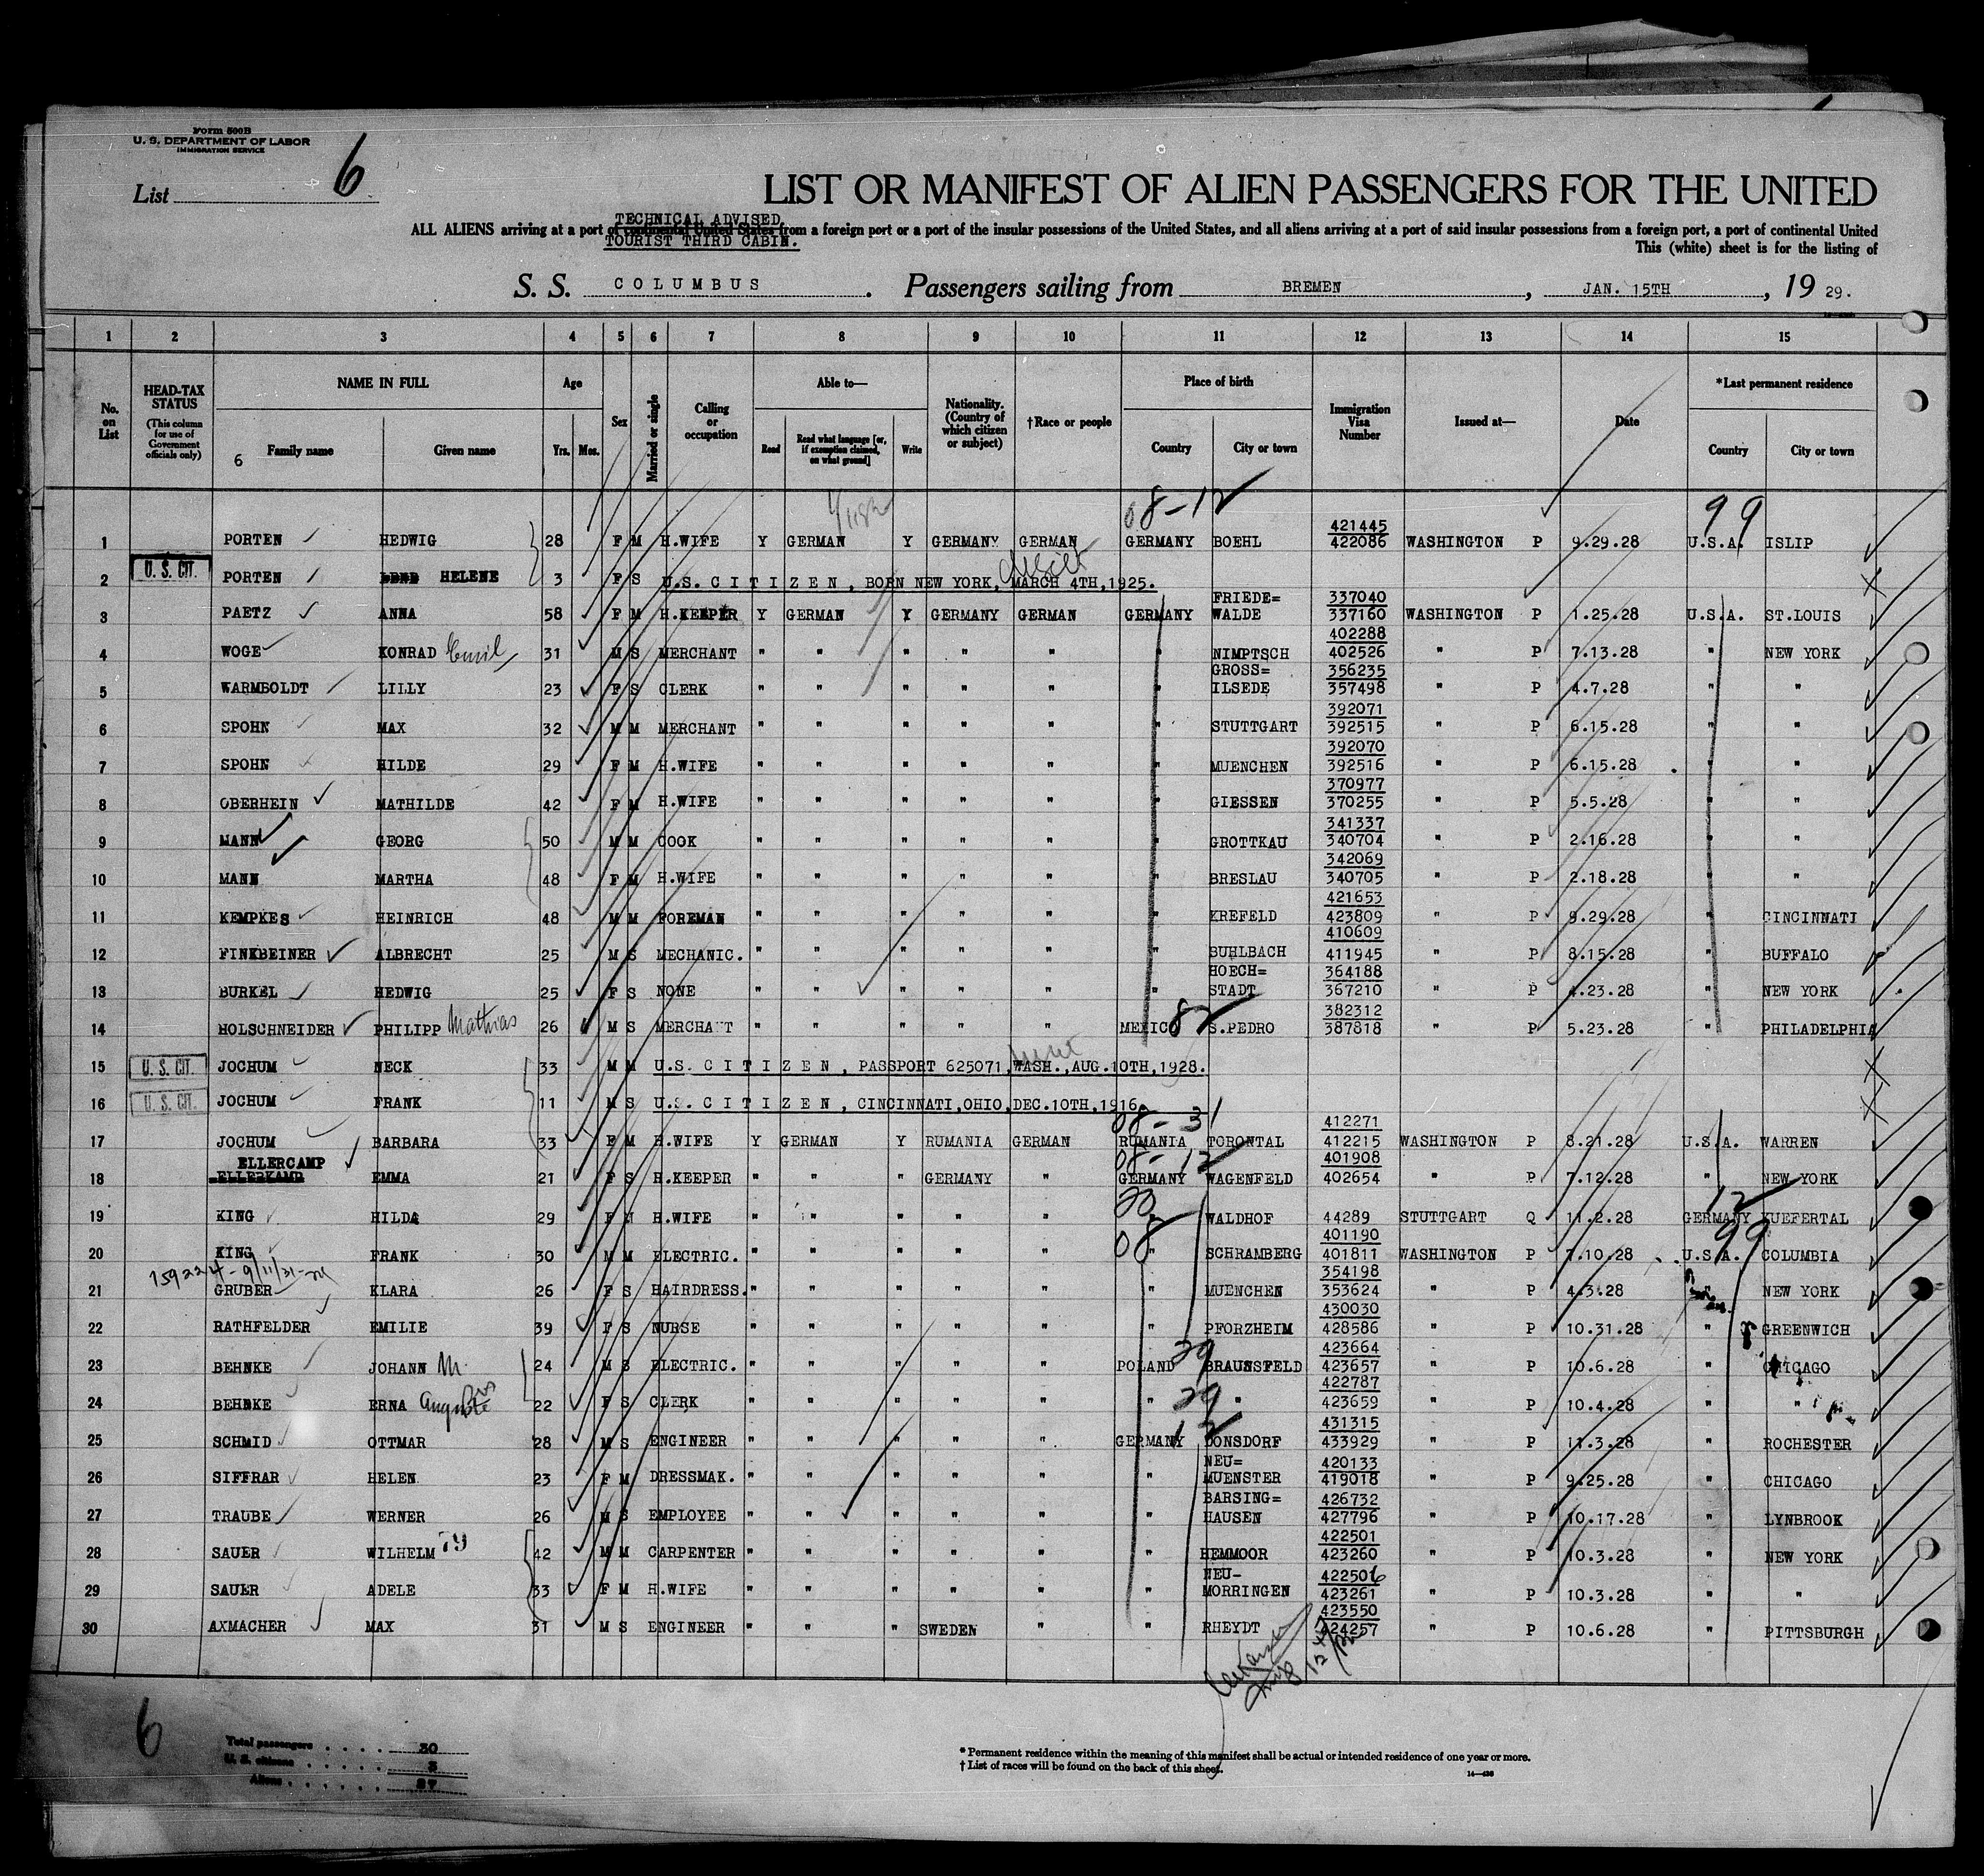 Form 500B
U. S. DEPARTMENT OF LABOR
IMMIGRATION SERVICE
List 6
LIST OR MANIFEST OF ALIEN PASSENGERS FOR THE UNITED
TECHNICAL ADVISED
ALL ALIENS arriving at a port of continental United States from a foreign port or a port of the insular possessions of the United States, and all aliens arriving at a port of said insular possessions from a foreign port, a port of continental United
TOURIST THIRD CABIN.
This (white) sheet is for the listing of
S. S. COLUMBUS. Passengers sailing from BREMEN, JAN. 15TH, 19 29.
1 2 3 4 5 6 7 8 9 10 11 12 13 14 15
No. on List
HEAD-TAX STATUS (This column for use of Government officials only)
NAME IN FULL
6 Family name Given name
Age Yrs. Mos.
Sex
Married or single
Calling or occupation
Able to—
Read Read what language [or, if exemption claimed, on what ground] Write
Nationality. (Country of which citizen or subject)
†Race or people
Place of birth
Country City or town
Immigration Visa Number
Issued at—
Date
*Last permanent residence
Country City or town
08-12 99
421445
1 PORTEN HEDWIG 28 F M H.WIFE Y GERMAN Y GERMANY GERMAN GERMANY BOEHL 422086 WASHINGTON P 9.29.28 U.S.A. ISLIP
2 U.S. CIT. PORTEN HELENE 3 F S U.S. CITIZEN, BORN NEW YORK, MARCH 4TH,1925.
FRIEDE= 337040
3 PAETZ ANNA 58 F M H.KEEPER Y GERMAN Y GERMANY GERMAN GERMANY WALDE 337160 WASHINGTON P 1.25.28 U.S.A. ST.LOUIS
402288
4 WOGE KONRAD Emil 31 M S MERCHANT " " " " " " NIMPTSCH 402526 " P 7.13.28 " NEW YORK
GROSS= 356235
5 WARMBOLDT LILLY 23 F S CLERK " " " " " " ILSEDE 357498 " P 4.7.28 " "
392071
6 SPOHN MAX 32 M M MERCHANT " " " " " " STUTTGART 392515 " P 6.15.28 " "
392070
7 SPOHN HILDE 29 F M H.WIFE " " " " " " MUENCHEN 392516 " P 6.15.28 " "
370977
8 OBERHEIN MATHILDE 42 F M H.WIFE " " " " " " GIESSEN 370255 " P 5.5.28 " "
341337
9 MANN GEORG 50 M M COOK " " " " " " GROTTKAU 340704 " P 2.16.28 " "
342069
10 MANN MARTHA 48 F M H.WIFE " " " " " " BRESLAU 340705 " P 2.18.28 " "
421653
11 KEMPKES HEINRICH 48 M M FOREMAN " " " " " " KREFELD 423809 " P 9.29.28 " CINCINNATI
410609
12 FINKBEINER ALBRECHT 25 M S MECHANIC. " " " " " " BUHLBACH 411945 " P 8.15.28 " BUFFALO
HOECH= 364188
13 BURKEL HEDWIG 25 F S NONE " " " " " " STADT 367210 " P 4.23.28 " NEW YORK
382312
14 HOLSCHNEIDER PHILIPP Mathias 26 M S MERCHANT " " " " " MEXICO 82 S.PEDRO 387818 " P 5.23.28 " PHILADELPHIA
15 U.S. CIT. JOCHUM NECK 33 M M U.S. CITIZEN, PASSPORT 625071,WASH.,AUG.10TH,1928.
16 U.S. CIT. JOCHUM FRANK 11 M S U.S. CITIZEN, CINCINNATI,OHIO,DEC.10TH,1916
08-31 412271
17 JOCHUM BARBARA 33 F M H.WIFE Y GERMAN Y RUMANIA GERMAN RUMANIA TORONTAL 412215 WASHINGTON P 8.21.28 U.S.A. WARREN
ELLERCAMP 08-12 401908
18 ELLERKAMP EMMA 21 F S H.KEEPER " " " GERMANY " GERMANY WAGENFELD 402654 " P 7.12.28 " NEW YORK
12
19 KING HILDA 29 F M H.WIFE " " " " " WALDHOF 44289 STUTTGART Q 11.2.28 GERMANY KUEFERTAL
08 401190 99
20 KING FRANK 30 M M ELECTRIC. " " " " " " SCHRAMBERG 401811 WASHINGTON P 7.10.28 U.S.A. COLUMBIA
159224-9/11/31 354198
21 GRUBER KLARA 26 F S HAIRDRESS. " " " " " " MUENCHEN 353624 " P 4.3.28 " NEW YORK
430030
22 RATHFELDER EMILIE 39 F S NURSE " " " " " " PFORZHEIM 428586 " P 10.31.28 " GREENWICH
39 423664
23 BEHNKE JOHANN M. 24 M S ELECTRIC. " " " " " POLAND BRAUNSFELD 423657 " P 10.6.28 " CHICAGO
39 422787
24 BEHNKE ERNA Auguste 22 F S CLERK " " " " " " " 423659 " P 10.4.28 " "
12 431315
25 SCHMID OTTMAR 28 M S ENGINEER " " " " " GERMANY DONSDORF 433929 " P 11.3.28 " ROCHESTER
NEU= 420133
26 SIFFRAR HELEN 23 F M DRESSMAK. " " " " " " MUENSTER 419018 " P 9.25.28 " CHICAGO
BARSING= 426732
27 TRAUBE WERNER 26 M S EMPLOYEE " " " " " " HAUSEN 427796 " P 10.17.28 " LYNBROOK
422501
28 SAUER WILHELM 42 M M CARPENTER " " " " " " HEMMOOR 423260 " P 10.3.28 " NEW YORK
NEU- 422506
29 SAUER ADELE 33 F M H.WIFE " " " " " " MORRINGEN 423261 " P 10.3.28 " "
423550
30 AXMACHER MAX 31 M S ENGINEER " " " SWEDEN " " RHEYDT 424257 " P 10.6.28 " PITTSBURGH
6
Total passengers . . . . 30
U. S. citizens . . . . . 3
Aliens . . . . . . 27
* Permanent residence within the meaning of this manifest shall be actual or intended residence of one year or more.
† List of races will be found on the back of this sheet.